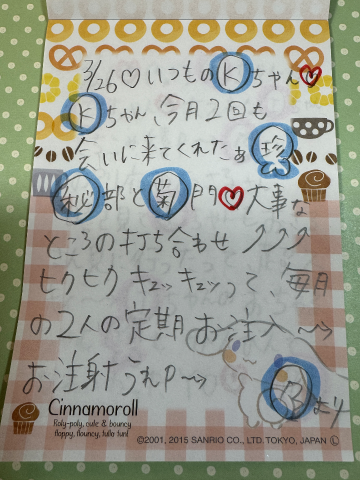 3/26♡いつものⓀちゃん♥
Ⓚちゃん、今月2回も
会いに来てくれたぁ珍
秘部と菊門♥大事な
ところの打ち合わせ♪♪♪
ヒクヒクキュッキュッって、毎月
の2人の定期お注入〜〜
お注射うれP〜〜
乃より
Cinnamoroll
Roly-poly, cute & bouncy
floppy, flouncy, fulla fun!
©2001, 2015 SANRIO CO., LTD. TOKYO, JAPAN Ⓛ